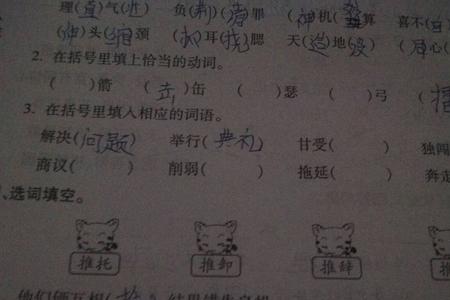 理(直)气(壮) 负(荆)(请)罪 (神)机(妙)算 喜不(自
(抽)头(缩)颈 (抓)耳(挠)腮 天(造)地(设) (
2. 在括号里填上恰当的动词。
( )箭 (击)缶 ( )瑟 ( )弓 (
3. 在括号里填入相应的词语。
解决(问题) 举行(典礼) 甘受( ) 独闯
商议( ) 削弱( ) 拖延( ) 奔走
、选词填空。
推托 推卸 推辞 推